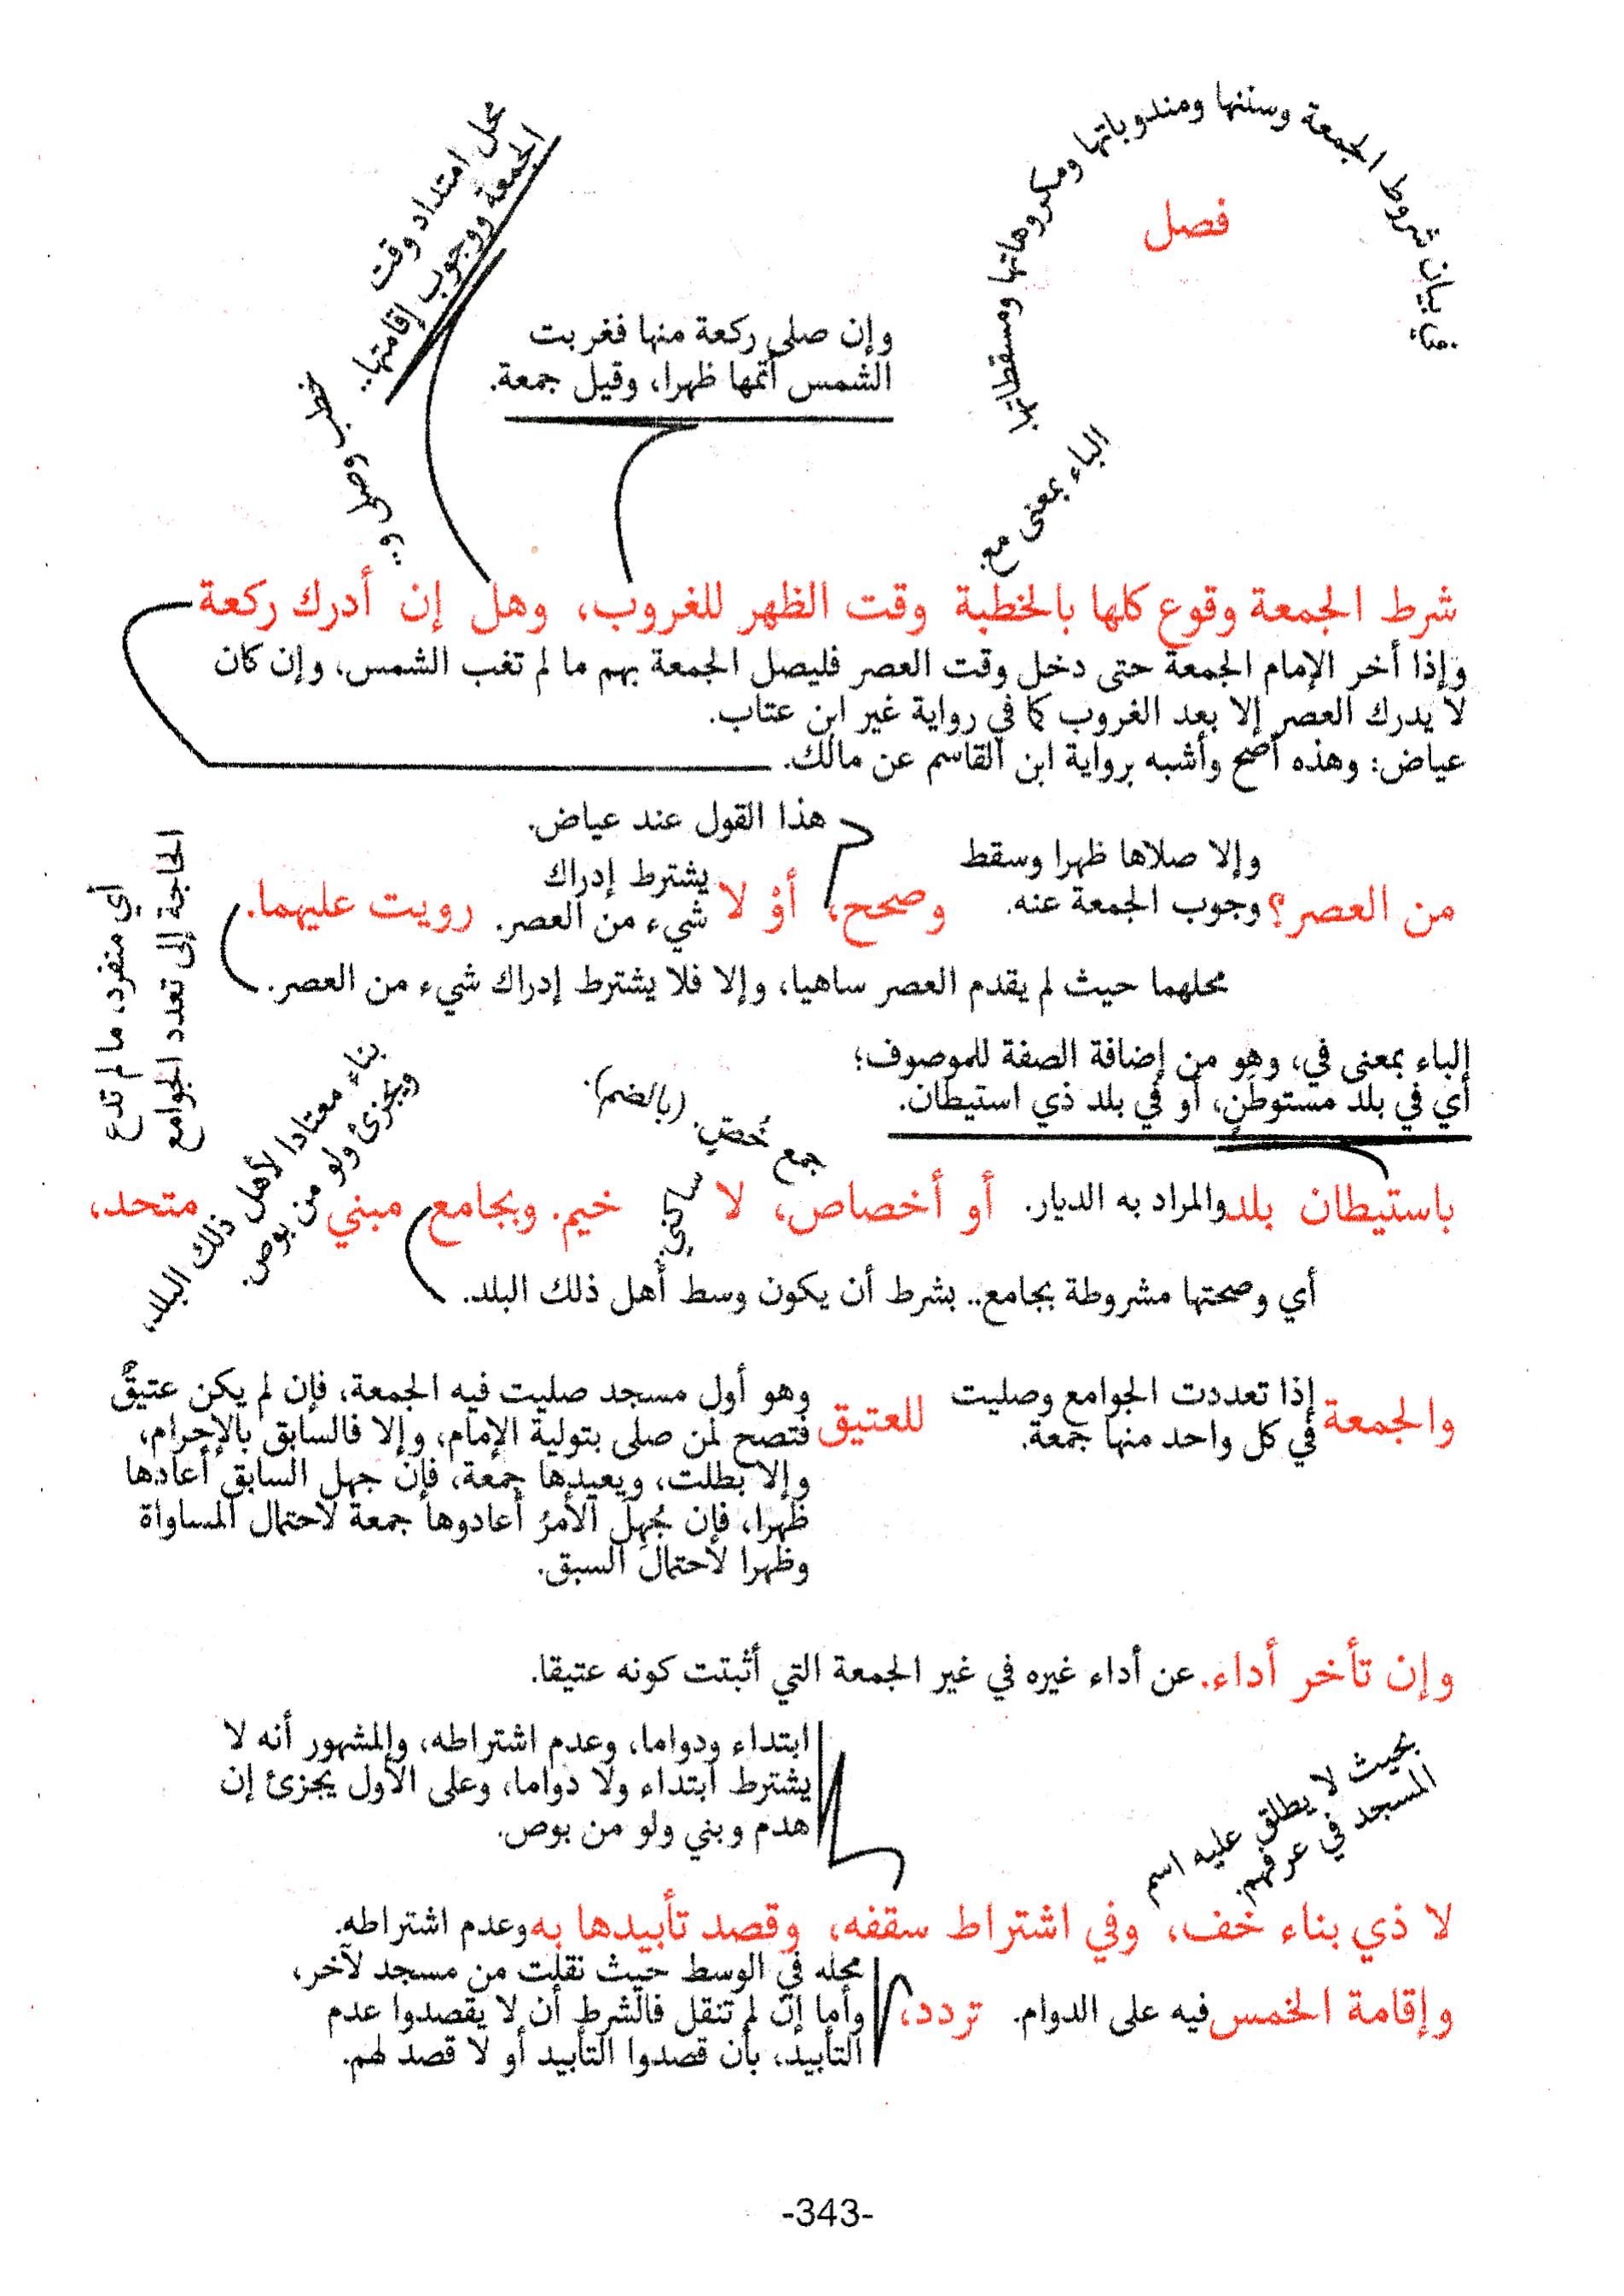 فصل
في بيان شروط الجمعة وسننها ومندوباتها ومكروهاتها ومسقطاتها
محل امتداد وقت
الجمعة ووجوب إقامتها..
خطب وصلى و..
وإن صلى ركعة منها فغربت
الشمس أتمها ظهرا، وقيل جمعة.
الباء بمعنى مع.
شرط الجمعة وقوع كلها بالخطبة وقت الظهر للغروب، وهل إن أدرك ركعة
وإذا أخر الإمام الجمعة حتى دخل وقت العصر فليصل الجمعة بهم ما لم تغب الشمس، وإن كان
لا يدرك العصر إلا بعد الغروب كما في رواية غير ابن عتاب.
عياض: وهذه أصح وأشبه برواية ابن القاسم عن مالك.
هذا القول عند عياض.
من العصر؟ وإلا صلاها ظهرا وسقط
وجوب الجمعة عنه. وصحح، أوْ لا يشترط إدراك
شيء من العصر. رويت عليهما.
محلهما حيث لم يقدم العصر ساهيا، وإلا فلا يشترط إدراك شيء من العصر.
الباء بمعنى في، وهو من إضافة الصفة للموصوف؛
أي في بلد مستوطَنٍ، أو في بلد ذي استيطان.
جمع خُص. (بالضم).
ساكني.
بناء معتادا لأهل ذلك البلد،
ويجزئ ولو من بوص.
أي متفرد، ما لم تدع
الحاجة إلى تعدد الجوامع
باستيطان بلد والمراد به الديار. أو أخصاص، لا خيم. وبجامع مبني متحد،
أي وصحتها مشروطة بجامع.. بشرط أن يكون وسط أهل ذلك البلد.
والجمعة إذا تعددت الجوامع وصليت
في كل واحد منها جمعة.
للعتيق وهو أول مسجد صليت فيه الجمعة، فإن لم يكن عتيقٌ
فتصح لمن صلى بتولية الإمام، وإلا فالسابق بالإحرام،
وإلا بطلت، ويعيدها جمعة، فإن جهل السابق أعادها
ظهرا، فإن جُهِلَ الأمرُ أعادوها جمعة لاحتمال المساواة
وظهرا لاحتمال السبق.
وإن تأخر أداء. عن أداء غيره في غير الجمعة التي أثبتت كونه عتيقا.
ابتداء ودواما، وعدم اشتراطه، والمشهور أنه لا
يشترط ابتداء ولا دواما، وعلى الأول يجزئ إن
هدم وبني ولو من بوص.
بحيث لا يطلق عليه اسم
المسجد في عرفهم.
لا ذي بناء خف، وفي اشتراط سقفه، وقصد تأبيدها به وعدم اشتراطه.
وإقامة الخمس فيه على الدوام. تردد، محله في الوسط حيث نقلت من مسجد لآخر،
وأما إن لم تنقل فالشرط أن لا يقصدوا عدم
التأبيد، بأن قصدوا التأبيد أو لا قصد لهم.
-343-